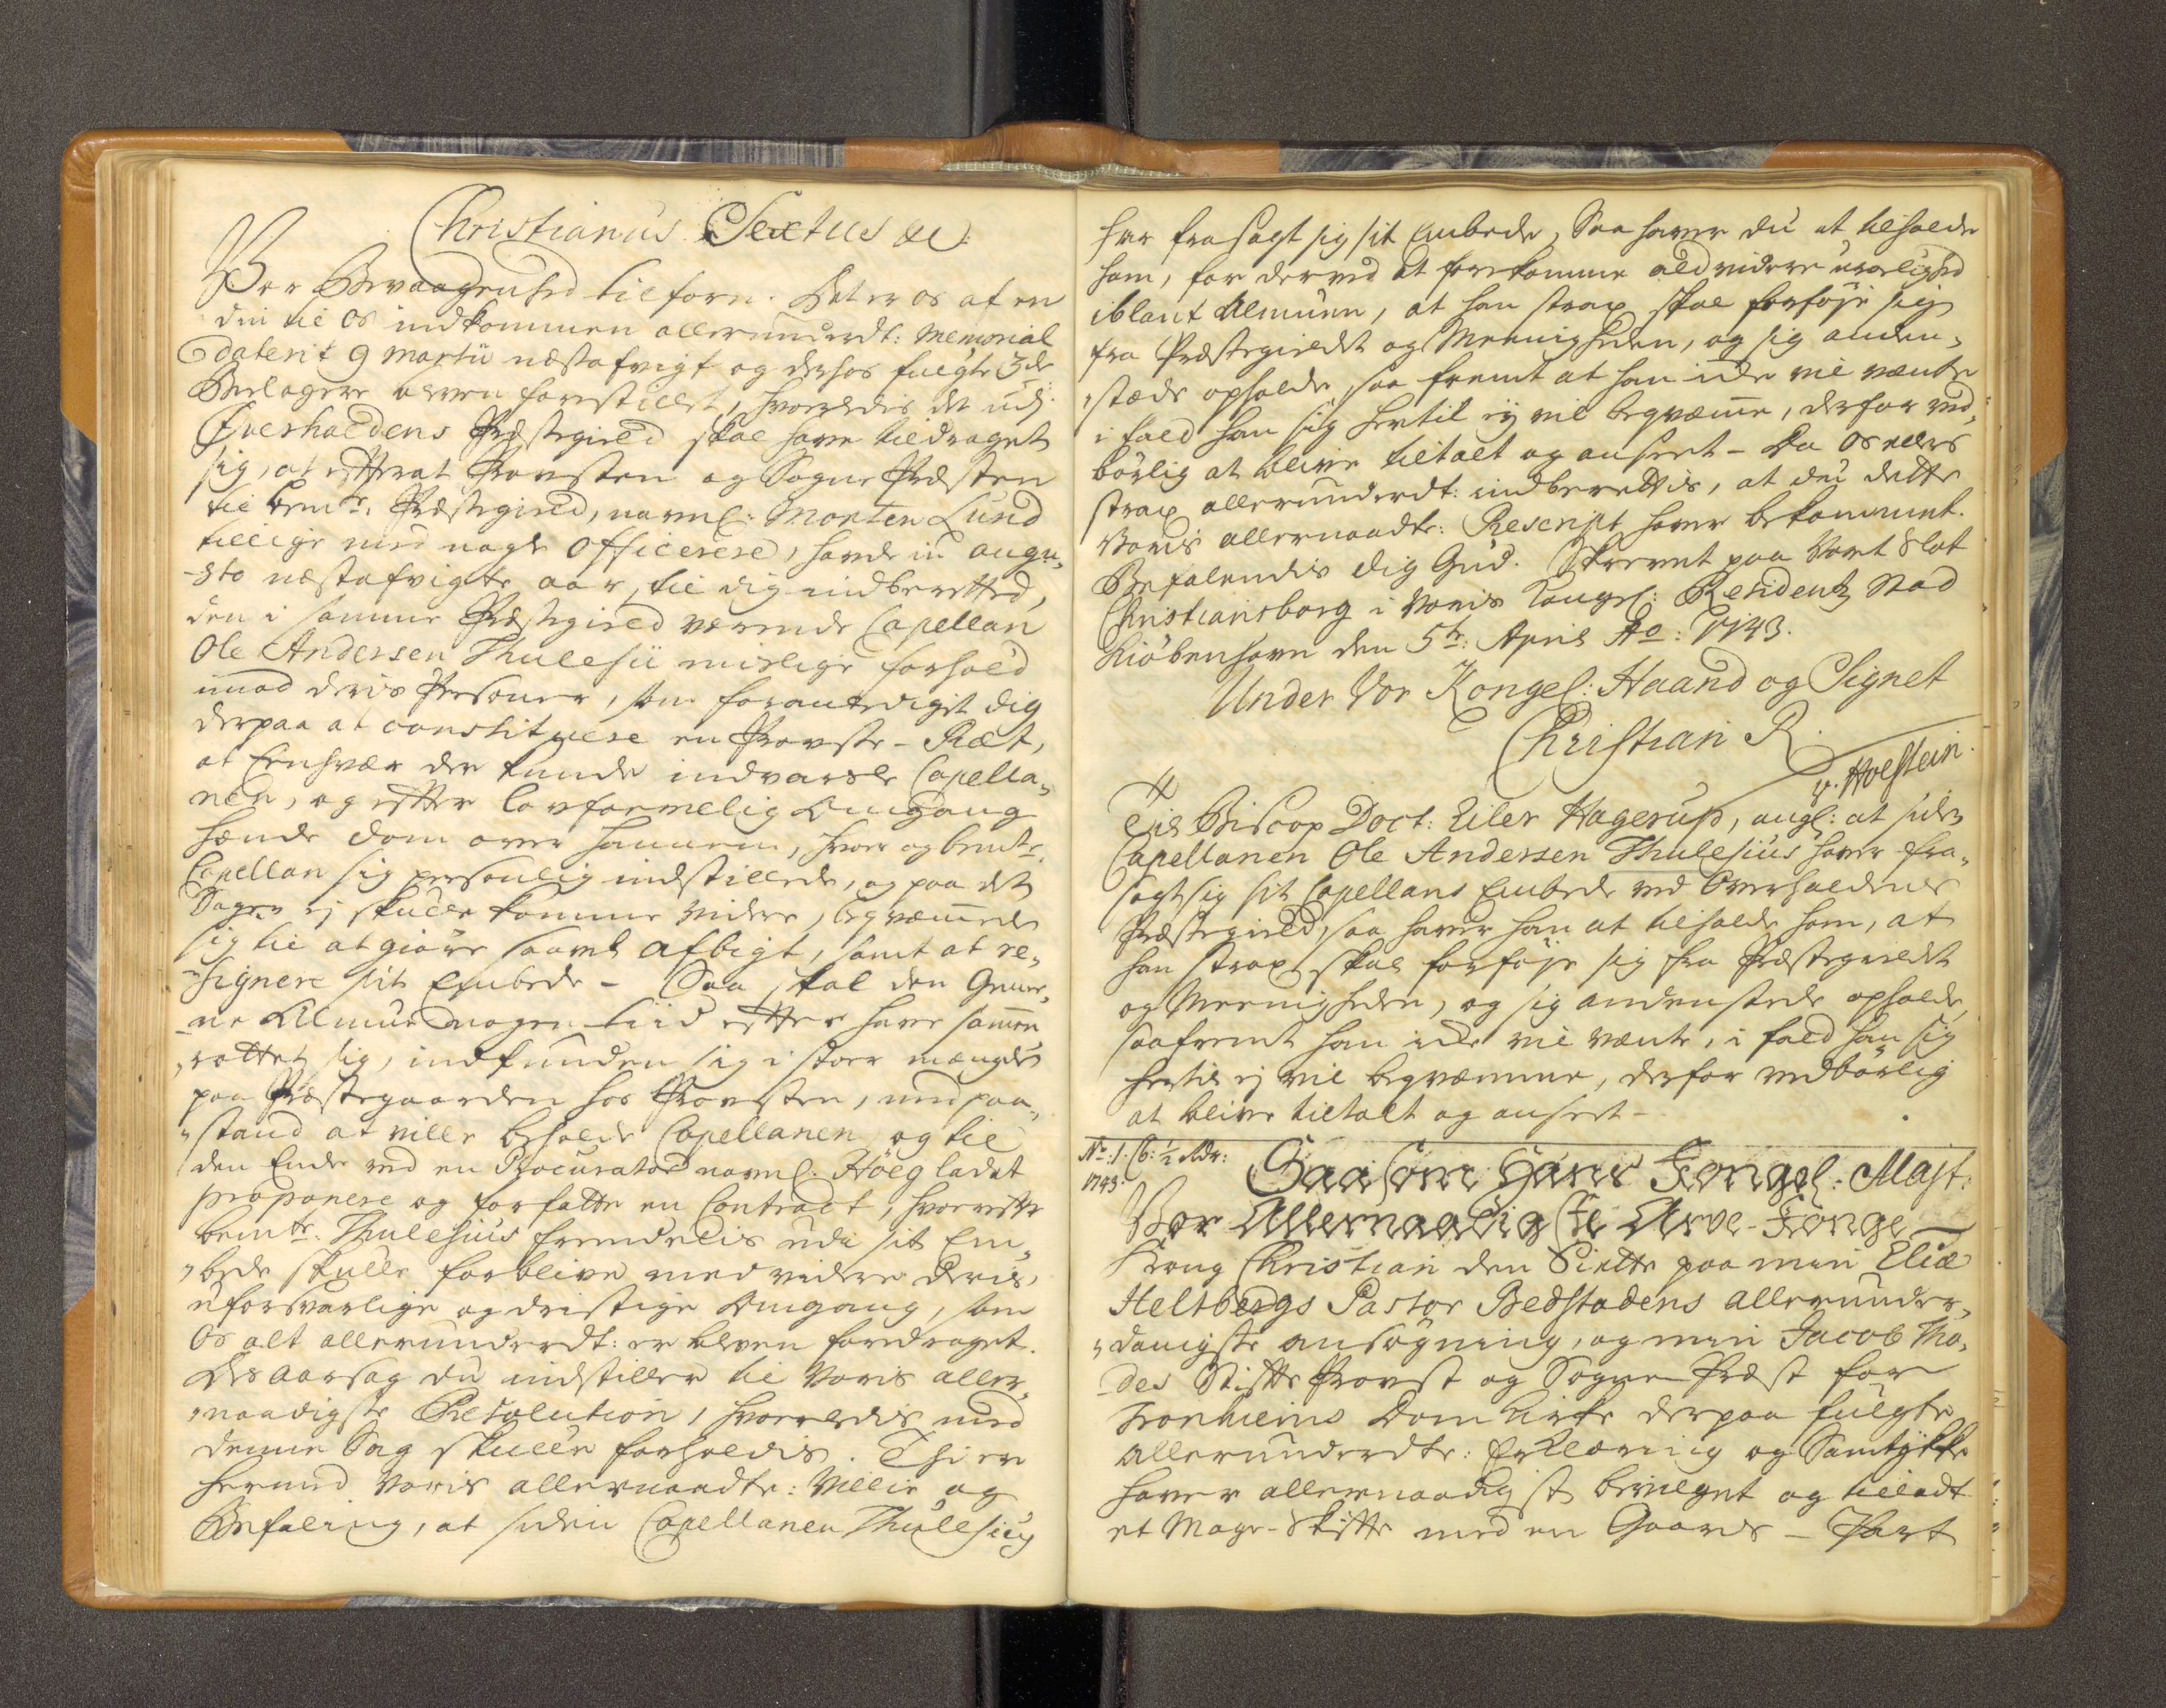 Christianus Sextus &c:
Vor Bevaagenhed tilforn. Det er os af en
din til Os indkommen allerunderdt: Memorial
daterit 9 Martii næstafvigt og derhos fulgte 3de
Bielagere bleven forestillet, hvorledis det udj
Overhaldens Præstegield skal have tildraget
sig, at efterat Provsten og Sogne Præsten
til bemte. Præstegield, navnl: Morten Lund
tillige med nogle Officerere, hafde in Augu-
-sto næstafvigte aar, til dig indberetted,
den i samme Præstegield værende Capellan
Ole Andersen Thulesii mislige forhold
imod deris Personer, som foranlediget dig
derpaa at constituere en Provste-Ræt,
at Enhver der kunde indvarsle Capella-
nen, og efter lovformelig Omgang
hænde Dom over hannem, hvor og bemte.
Capellan sig personlig indstillede, og paa det
Sagen ej skulle komme videre, beqvæmmede
sig til at giøre saavel Afbigt, samt at re-
signere sit Embede - Saa skal den Geme-
-ne Almue nogen tiid efter have sammen
rottet sig, indfunden sig i stoor mængde
paa Præstegaarden hos Provsten, med paa-
stand at ville beholde Capellanen, og til
den Ende ved en Procurator navnl: Höeg ladet
proponere og forfatte en Contract, hvorefter
bemte. Thulesius fremdelis udi sit Em-
bede skulle forblive med videre deris
uforsvarlige og dristige Omgang, som
Os alt allerunderdt: er bleven foredraget.
Des Aarsag du indstiller til Voris aller-
naadigste Resolution, hvorledis med
denne Sag skulle forholdis. Thi er
hermed Voris allernaadte: Villie og
Befaling, at siden Capellanen Thulesius
har frasagt sig sit Embede, Saa haver du at tilholde
ham, for derved at forekomme ald videre uroelighed
iblant Almuen, at han strax skal forföje sig
fra Præstegieldet og Meenigheden, og sig anden-
stæds opholde, saa fremt at han icke vil vænte
i fald han sig hertil ej vil beqvæme, derfor ved-
börlig at blive tiltalt og anseet - Da Os ellers
strax allerunderdt: indberettis, at du dette
Voris allernaadte: Rescript haver bekommet.
Befalendis dig Gud. Skrevet paa Vort Slot
Christiansborg i Voris Kongel: Residentz Stad
Kiöbenhavn den 5te: April Ao: 1743.
Under Vor Kongel: Haand og Signet
Christian R.
v. Holstein.
Til Biscop Doct: Eiler Hagerup, angl: at siden
Capellanen Ole Andersen Thulesius haver fra-
sagt sig sit Capellans Embede ved Overhaldens
Præstegield, saa haver han at tilholde ham, at
han strax skal forföje sig fra Præstegieldet
og Meenigheden, og sig andenstæds opholde,
saafremt han icke vil vænte, i fald han sig
hertil ej vil beqvæmme, derfor vedbörlig
at blive tiltalt og anseet -
No. 1. Cl: ½ Rdr:
1743.
Saasom Hans Kongel: Majt:
Vor Allernaadigste Arve-Konge
Kong Christian den Siette paa min Eliæ
Heltbergs Pastor Bedstadens allerunder-
danigste ansøgning, og min Jacob Tho-
des Stifts Provst og Sogne Præst for
Tronhiems Dom Kirke derpaa fulgte
allerunderdte: Erklæring og Samtykke
haver allernaadigst bevilget og tilladt
et Mage-Skifte med en Gaards - Part